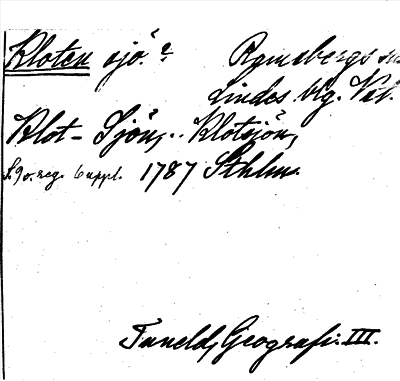 Kloten sjö. ?
Ramsbergs sn
Lindes blg. Vstl.
Klot-Sjön, Klotsjön,
S. 90. reg. 6 uppl. 1787 Sthlm.
Tuneld, Geografi. III.